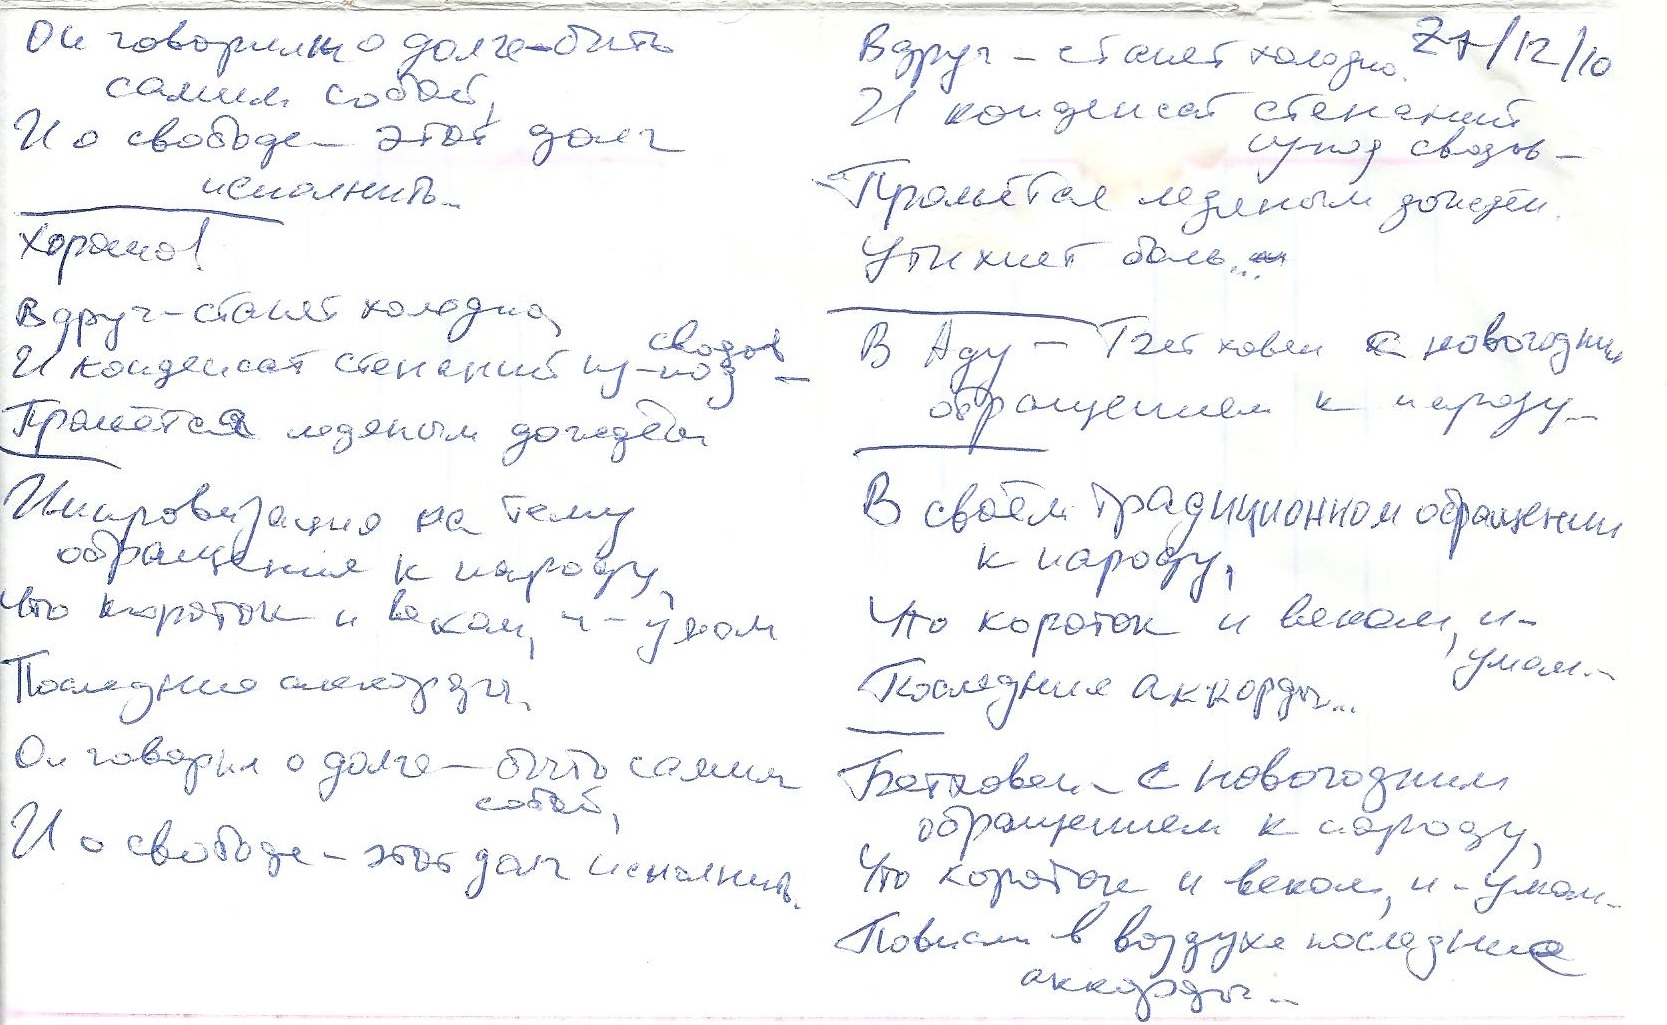 Он говорил о долге – быть
самим собой,
И о свободе – этот долг
исполнить...
Хорошо!
Вдруг – станет холодно,
И конденсат стенаний из-под
сводов –
Прольётся ледяным дождём
Импровизация на тему
обращения к народу,
Что короток и веком, и – умом
Последние аккорды.
Он говорил о долге – быть самим
собой,
И о свободе – этот долг исполнить.
27/12/10
Вдруг – станет холодно.
И конденсат стенаний
из-под сводов –
Прольётся ледяным дождём.
Утихнет боль...
В Аду – Бетховен с новогодним
обращением к народу –
В своём традиционном обращении
к народу,
Что короток и веком, и –
умом...
Последние аккорды...
Бетховен – с новогодним
обращением к народу,
Что короток и веком, и – умом...
Повисли в воздухе последние
аккорды...